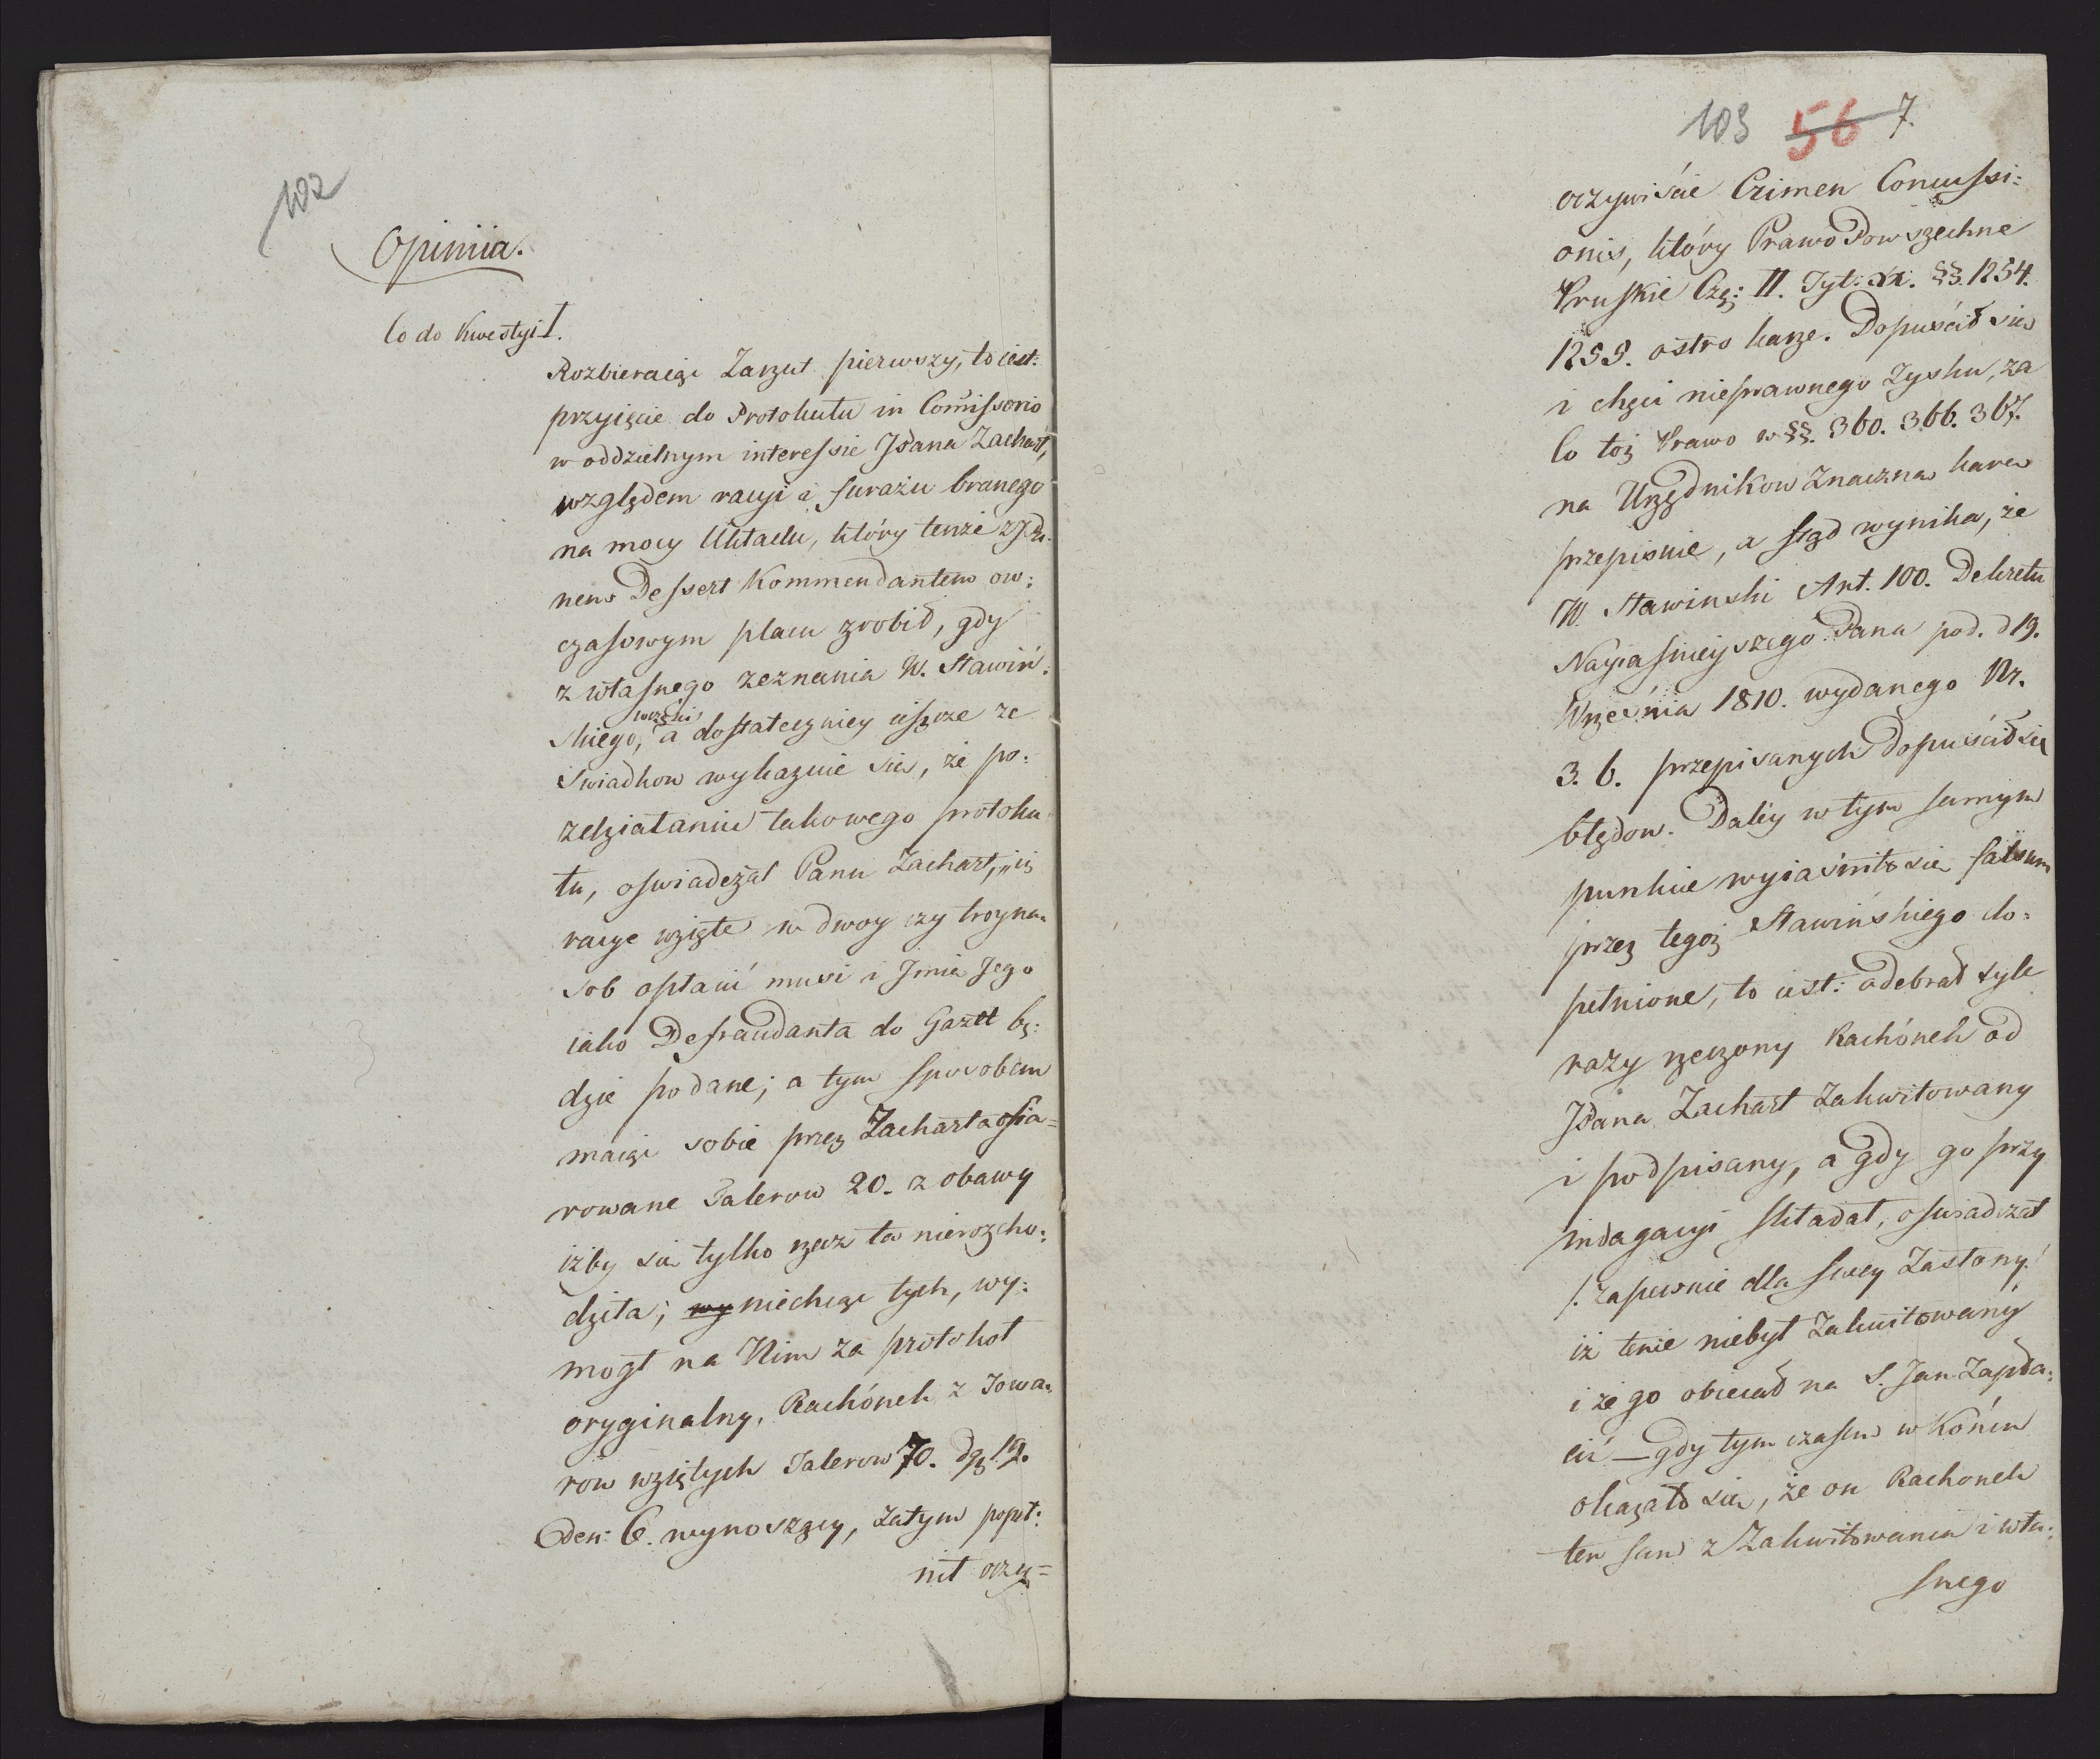 102
Opiniia.
Co do Kwestyi I.
Rozbieraiąc Zarzut pierwszy, to iest:
przyięcie do Protokułu in Comissorio
w oddzielnym interessie Pana Zachart,
względem racyi i furażu branego
na mocy Układu, który tenże z Pa-
nem Dessert Kommendantem ow:
czasowym placu zrobił, gdy
z własnego zeznania W. Sławiń:
skiego, a dostateczniey ieszcze ze
Swiadkow wykazuie się, że po:
zdziałaniu takowego protoku
łu, oswiadczał Panu Zachart, „iż
racye wzięte w dwoy czy troyna-
sob opłacić musi i Jmie Jego
iako Defraudanta do Gazet bę:
dzie podane; a tym sposobem
maiąc sobie przez Zacharta ofia-
rowane Talerow 20. z obawy
iżby się tylko rzecz ta nierozcho:
dziła; wy niechcąc tych, wy:
mogł na Nim za protokoł
oryginalny, Rachónek z Towa-
row wziętych Talerow 70. dgr 19.
den: 6. wynoszący, zatym popeł:
nił oczy=
103 56 7.
oczywiście Crimen Concussi:
onis, który Prawo Powszechne
Pruskie Czę: II. Tyt: XX. §§. 1254.
1255. ostro karze. Dopuścił się
i chęci nieprawnego Zysku, za
Co toż Prawo w §§. 360. 366. 367.
na Urzędnikow Znaczną karę
przepisuie, a stąd wynika, że
W. Sławinski Art. 100. Dekretu
Nayiasnieyszego Pana pod. d 19.
Września 1810. wydanego Nr.
3. 6. przepisanych Dopuścił się
błędow. Daley w tym samym
punkcie wyiaśniło się falsum
przez tegoż Sławińskiego do:
pełnione, to iest: odebrał tyle
razy rzeczony Rachónek od
Pana Zachart Zakwitowany
i podpisany, a gdy go przy
indagacyi składał, oswiadczał
/: zapewnie dla swey Zasłony:/
iż tenże niebył Zakwitowany
i że go obiecał na S. Jan Zapła:
cić — gdy tym czasem w Końcu
okazało się, że on Rachonek
ten sam z Zakwitowania i wła:
snego